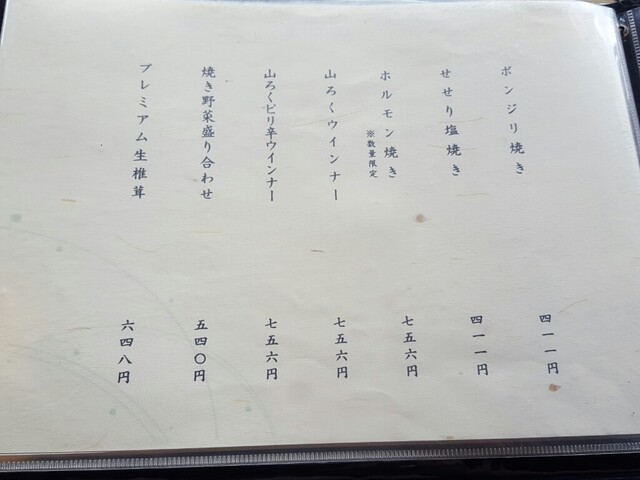 ボンジリ焼き
四一一円
せせり塩焼き
四一一円
ホルモン焼き
※数量限定
七五六円
山ろくウインナー
七五六円
山ろくピリ辛ウインナー
七五六円
焼き野菜盛り合わせ
五四〇円
プレミアム生椎茸
六四八円